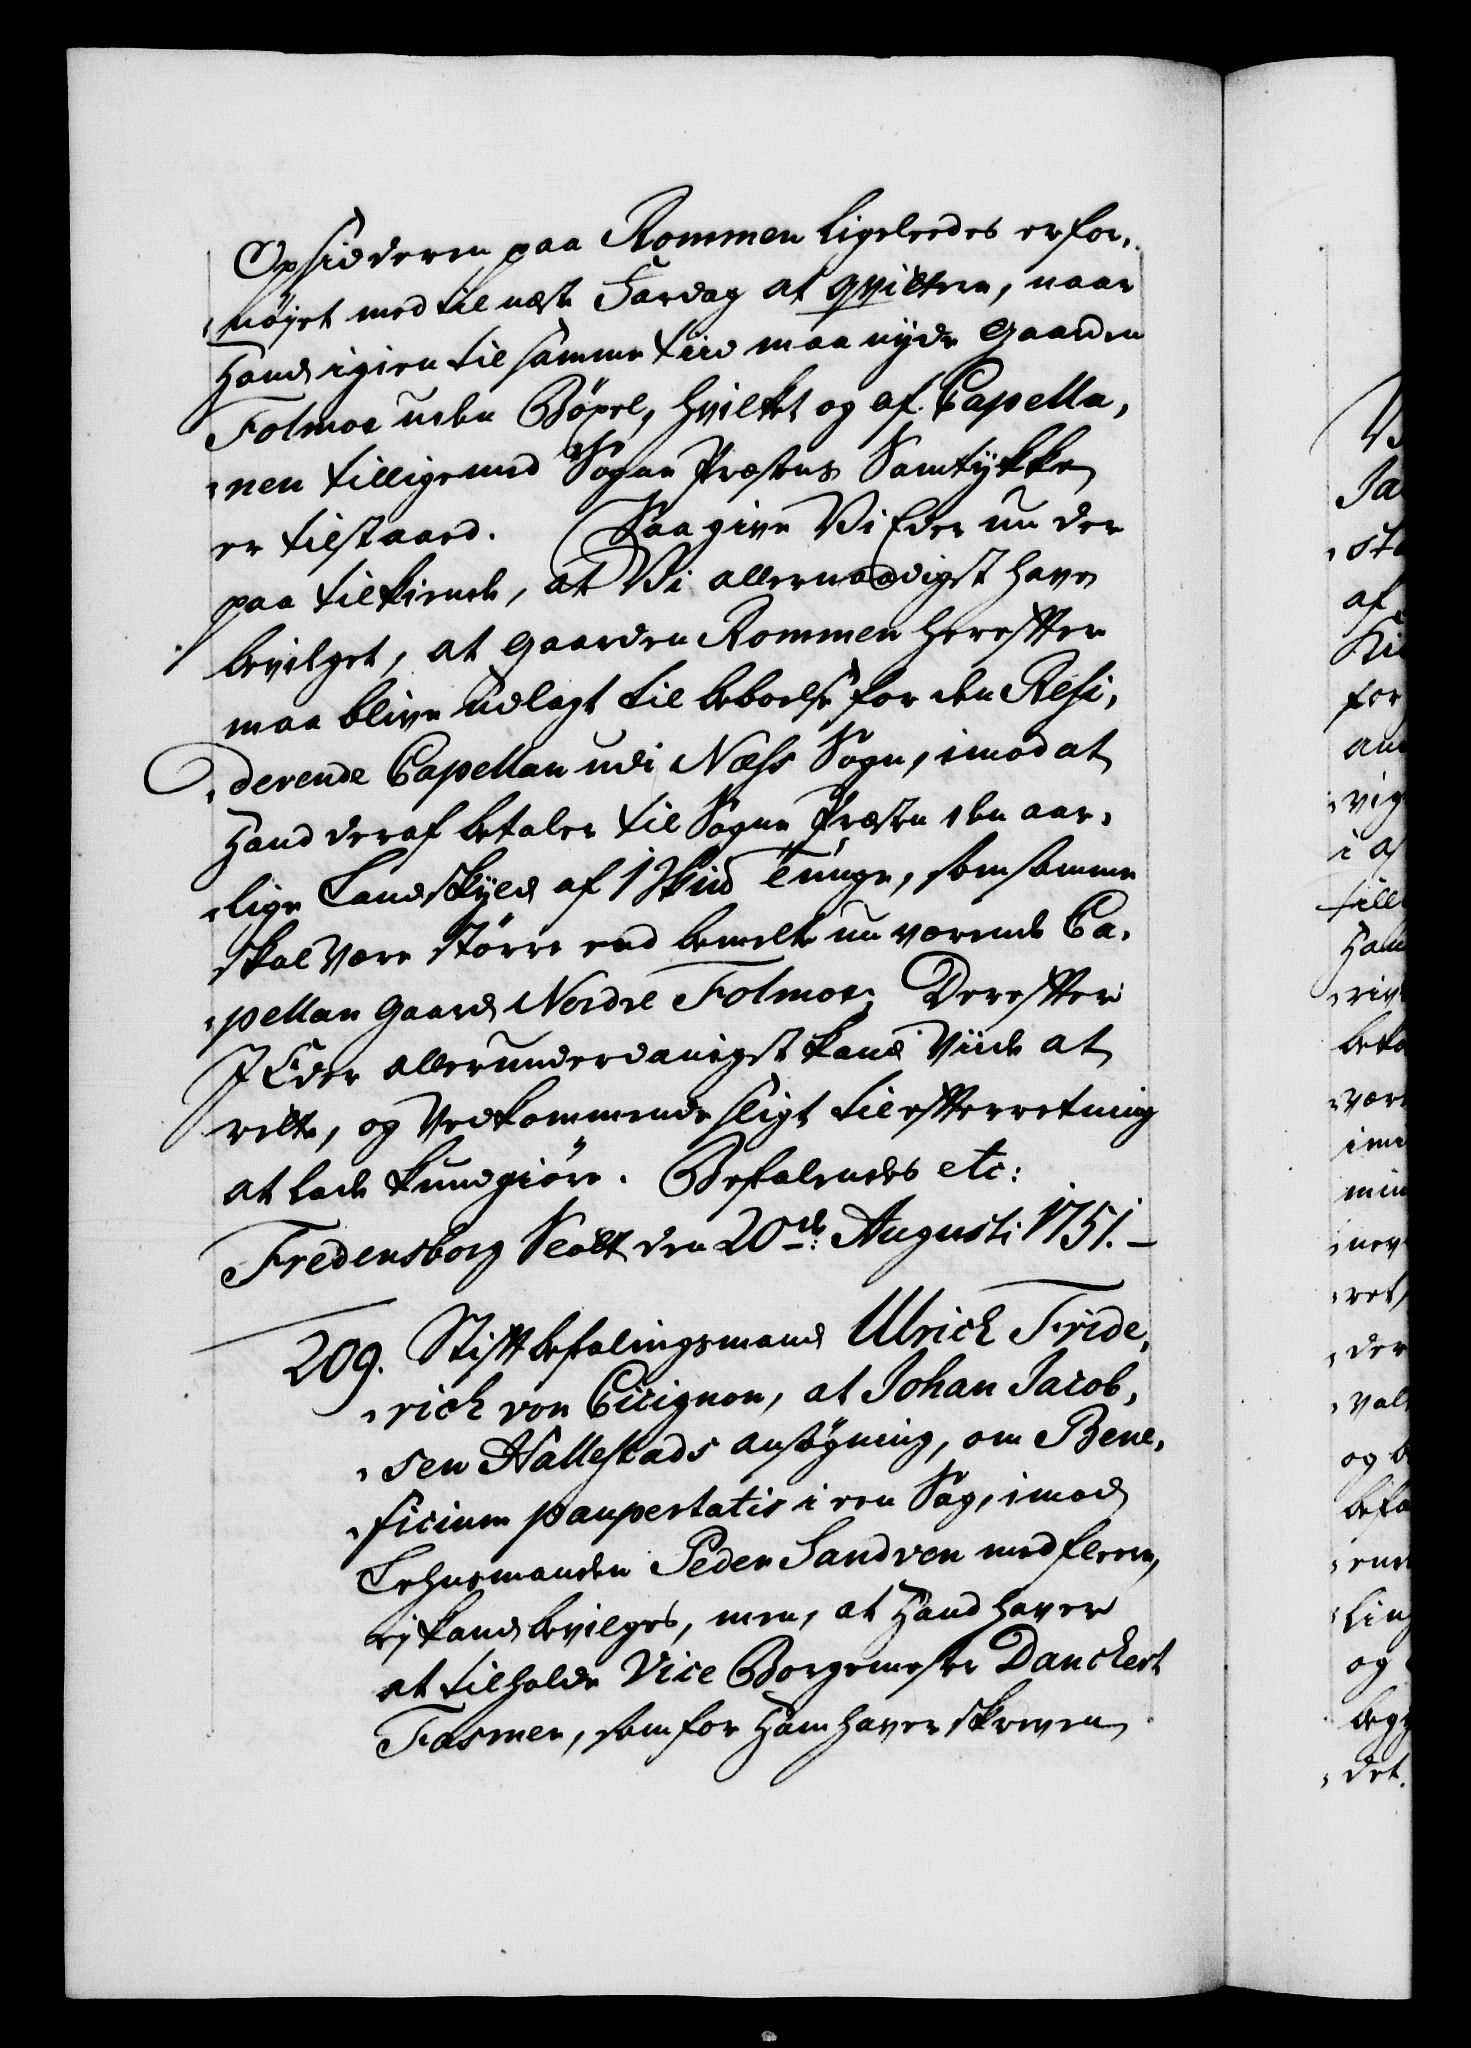 Opsidderen paa Rommen ligeledes er for,
„nöjet med til næste Fardag at qvittere, naar
Hand igien til samme tiid maa nyde Gaarden
Folmoe uden Böxel, hvilket og af Capella,
„nen tilligemed Sogne Præstens Samtÿkke
er tilstaaed. Saa give Vi Eder nu der
paa tilkiende, at Vi allernaadigst have
bevilget, at Gaarden Rommen herefter
maa blive Udlagt til beboelse for den Resi,
„derende Capellan udi Næss Sogn, imod at
Hand deraf betaler til Sogne Præsten den aar,
„lige Landskÿld af 1 Skind Tunge, som samme
skal være större end bemelte nu værende Ca,
„pellan Gaard Nordre Folmoe; Derefter
I Eder allerunderdanigst kand Viide at
rette, og Vedkommende sligt til efterretning
at lade kundgiöre. Befalendes etc:
Fredensborg Slott den 20de: Augusti 1751. –
209. Stiftbefalingsmand Ulrich Fride,
„rich von Cicignon, at Johan Jacob,
„sen Hallestads ansögning, om Bene,
„ficium paupertatis i een Sag, imod
Lehnsmanden Peder Sandven med fleere,
ej kand bevilges, men, at Hand haver
at tilholde Vice Borgemester Danckert
Fasmer, som for Ham haver skreven